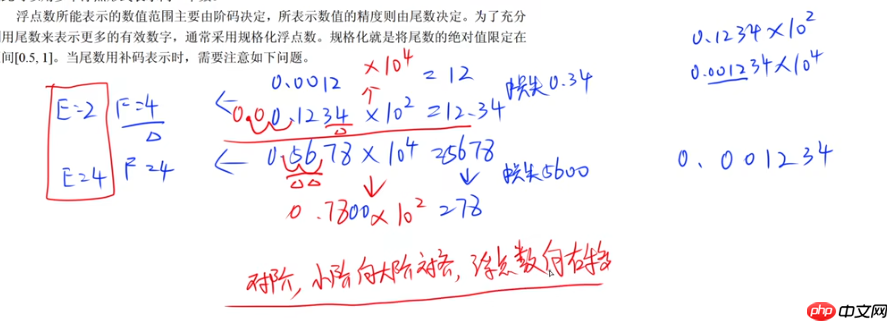 浮点数所能表示的数值范围主要由阶码决定，所表示数值的精度则由尾数决定。为了充分
用尾数来表示更多的有效数字，通常采用规格化浮点数。规格化就是将尾数的绝对值限定在
间[0.5, 1]。当尾数用补码表示时，需要注意如下问题。
0.1234×10²
0.001234×10⁴
0.0012 ×10⁴ = 12
损失0.34
E=2 F=4
0.0 0.1234 ×10² =12.34
E=4 F=4
0.5678×10⁴ =5678
0.001234
损失5600
0.7800×10² =78
对阶, 小阶向大阶对齐, 浮点数向右移
php 中文网